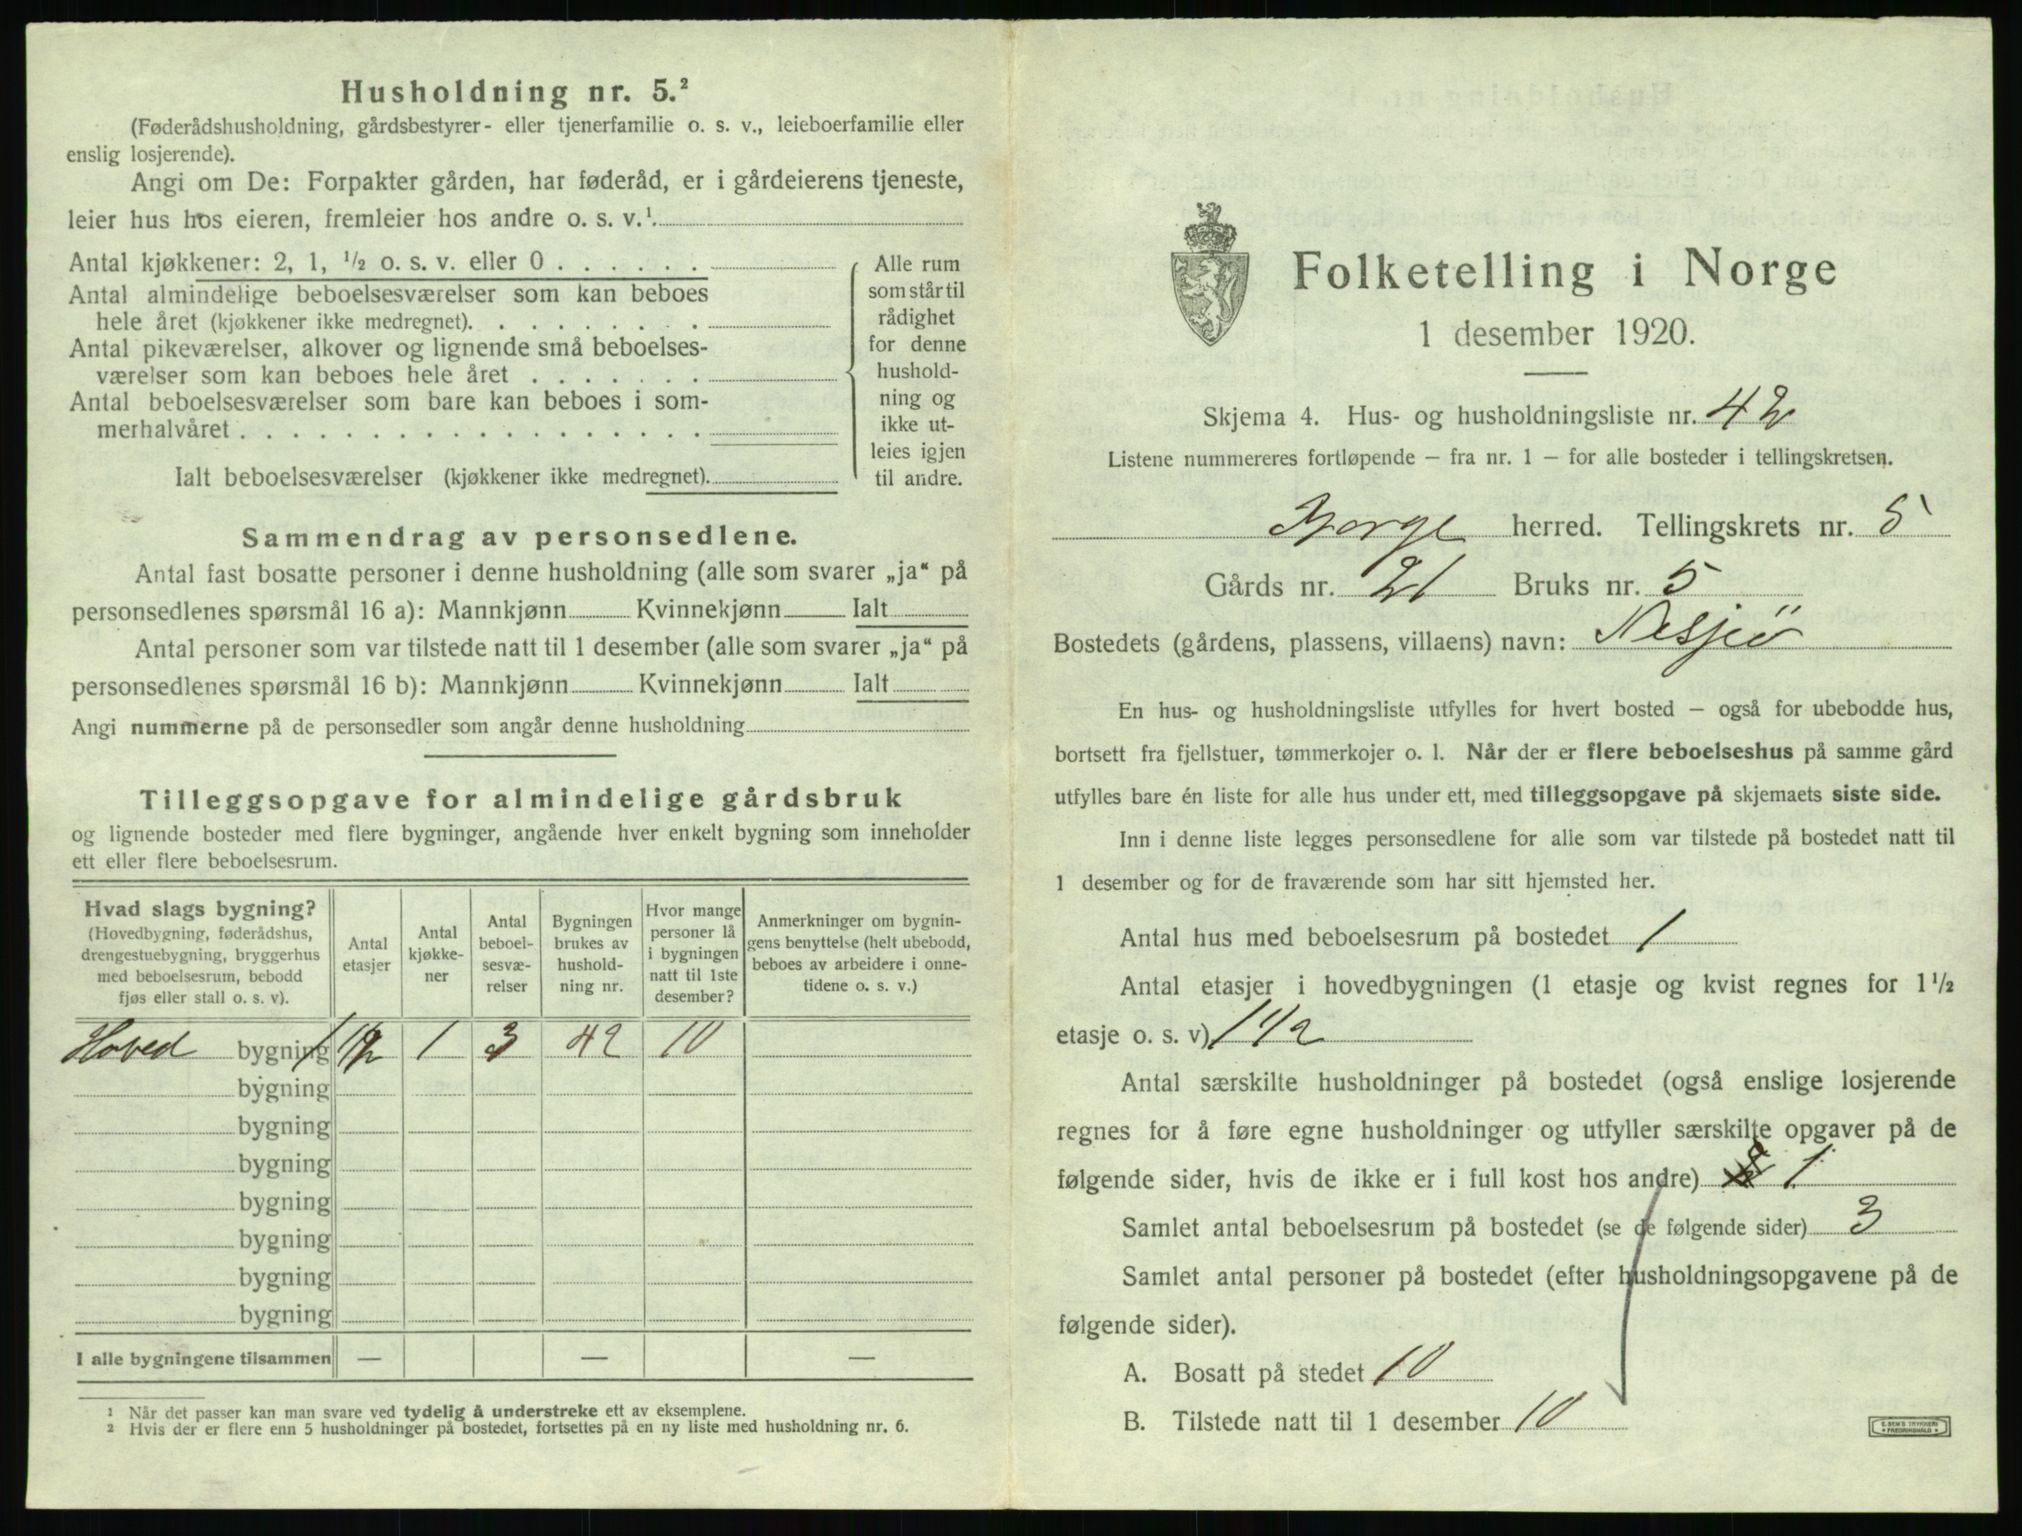 Husholdning nr. 5.²
(Føderådshusholdning, gårdsbestyrer- eller tjenerfamilie o. s. v., leieboerfamilie eller
enslig losjerende).
Angi om De: Forpakter gården, har føderåd, er i gårdeierens tjeneste,
leier hus hos eieren, fremleier hos andre o. s. v.¹.
Antal kjøkkener: 2, 1, ½ o. s. v. eller 0 . . . . . .
Antal almindelige beboelsesværelser som kan beboes
hele året (kjøkkener ikke medregnet). . . . . . . . .
Antal pikeværelser, alkover og lignende små beboelses-
værelser som kan beboes hele året . . . . . . .
Antal beboelsesværelser som bare kan beboes i som-
merhalvåret . . . . . . . . . . . . . . . . . .
Ialt beboelsesværelser (kjøkkener ikke medregnet).
Alle rum
som står til
rådighet
for denne
hushold-
ning og
ikke ut-
leies igjen
til andre.
Sammendrag av personsedlene.
Antal fast bosatte personer i denne husholdning (alle som svarer „ja“ på
personsedlenes spørsmål 16 a): Mannkjønn Kvinnekjønn Ialt
Antal personer som var tilstede natt til 1 desember (alle som svarer „ja“ på
personsedlenes spørsmål 16 b): Mannkjønn Kvinnekjønn Ialt
Angi nummerne på de personsedler som angår denne husholdning
Tilleggsopgave for almindelige gårdsbruk
og lignende bosteder med flere bygninger, angående hver enkelt bygning som inneholder
ett eller flere beboelsesrum.
Hvad slags bygning?
(Hovedbygning, føderådshus,
drengestuebygning, bryggerhus
med beboelsesrum, bebodd
fjøs eller stall o. s. v).
Antal
etasjer
Antal
kjøkke-
ner
Antal
beboel-
sesvæ-
relser
Bygningen
brukes av
hushold-
ning nr.
Hvor mange
personer lå
i bygningen
natt til 1ste
desember?
Anmerkninger om bygnin-
gens benyttelse (helt ubebodd,
beboes av arbeidere i onne-
tidene o. s. v.)
Hoved bygning 1 1/2 1 3 42 10
bygning
bygning
bygning
bygning
bygning
bygning
bygning
I alle bygningene tilsammen — — —
¹ Når det passer kan man svare ved tydelig å understreke ett av eksemplene.
² Hvis der er flere enn 5 husholdninger på bostedet, fortsettes på en ny liste med husholdning nr. 6.
Folketelling i Norge
1 desember 1920.
Skjema 4. Hus- og husholdningsliste nr. 42
Listene nummereres fortløpende — fra nr. 1 — for alle bosteder i tellingskretsen.
Borge herred. Tellingskrets nr. 5
Gårds nr. 21 Bruks nr. 5
Bostedets (gårdens, plassens, villaens) navn: Nesjö
En hus- og husholdningsliste utfylles for hvert bosted — også for ubebodde hus,
bortsett fra fjellstuer, tømmerkojer o. l. Når der er flere beboelseshus på samme gård
utfylles bare én liste for alle hus under ett, med tilleggsopgave på skjemaets siste side.
Inn i denne liste legges personsedlene for alle som var tilstede på bostedet natt til
1 desember og for de fraværende som har sitt hjemsted her.
Antal hus med beboelsesrum på bostedet 1
Antal etasjer i hovedbygningen (1 etasje og kvist regnes for 1½
etasje o. s. v) 1 1/2
Antal særskilte husholdninger på bostedet (også enslige losjerende
regnes for å føre egne husholdninger og utfyller særskilte opgaver på de
følgende sider, hvis de ikke er i full kost hos andre) 1
Samlet antal beboelsesrum på bostedet (se de følgende sider) 3
Samlet antal personer på bostedet (efter husholdningsopgavene på de
følgende sider).
A. Bosatt på stedet 10
B. Tilstede natt til 1 desember 10
E. SEM'S TRYKKERI
FREDRIKSHALD